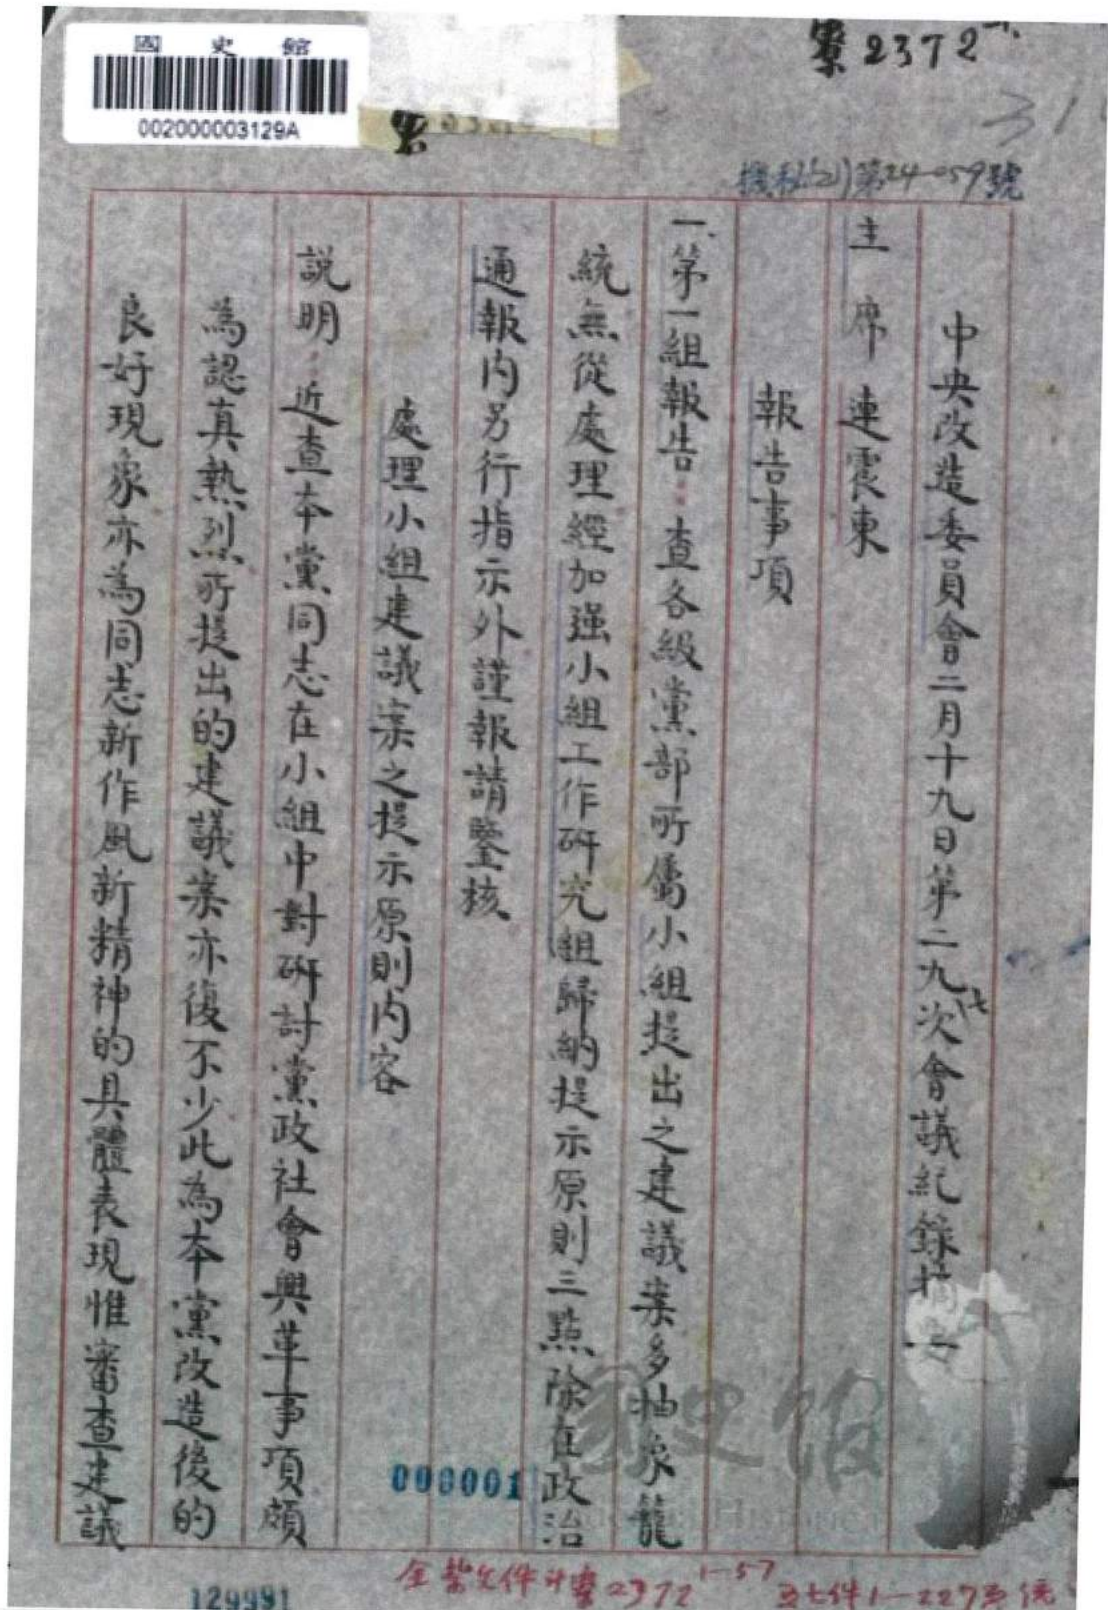 國史館
002000003129A
案2372
機秘(乙)第24-059號
中央改造委員會二月十九日第二九七次會議紀錄摘要
主席 連震東
報告事項
一、第一組報告：查各級黨部所屬小組提出之建議案多抽象籠
統無從處理經加强小組工作研究組歸納提示原則三點除在政治
通報內另行指示外謹報請鑒核
處理小組建議案之提示原則內容
說明：近查本黨同志在小組中對研討黨政社會興革事項頗
為認真熱烈所提出的建議案亦復不少此為本黨改造後的
良好現象亦為同志新作風新精神的具體表現惟審查建議
000001
129991